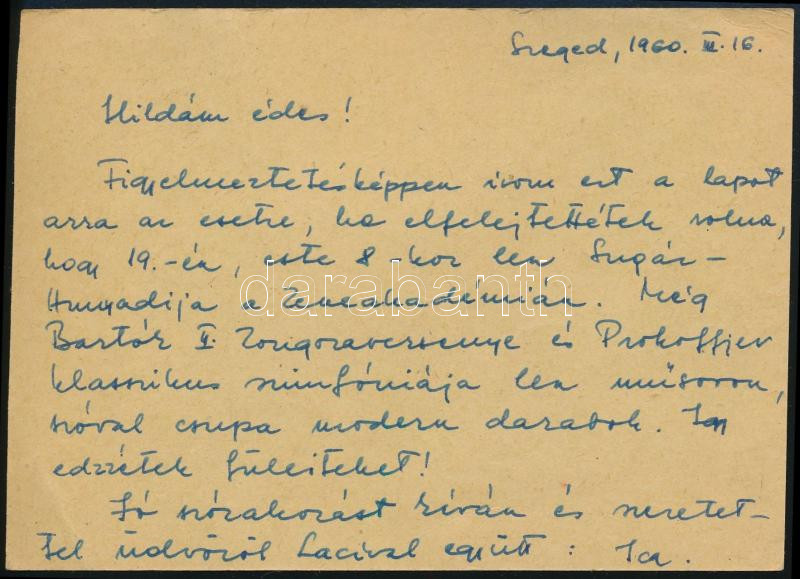 Szeged, 1960. III. 16.
Hildám édes!
Figyelmeztetésképpen írom ezt a lapot
arra az esetre, ha elfelejtettétek volna,
hogy 19.-én, este 8-kor lesz Sugár-
Hunyadija a Zeneakadémián. Még
Bartók II. Zongoraversenye és Prokoffjev
klasszikus szimfóniája lesz műsoron,
szóval csupa modern darabok. Így
edzzétek füleiteket!
Jó szórakozást kíván és szeretet-
tel üdvözöl Lacival együtt:
darabanth